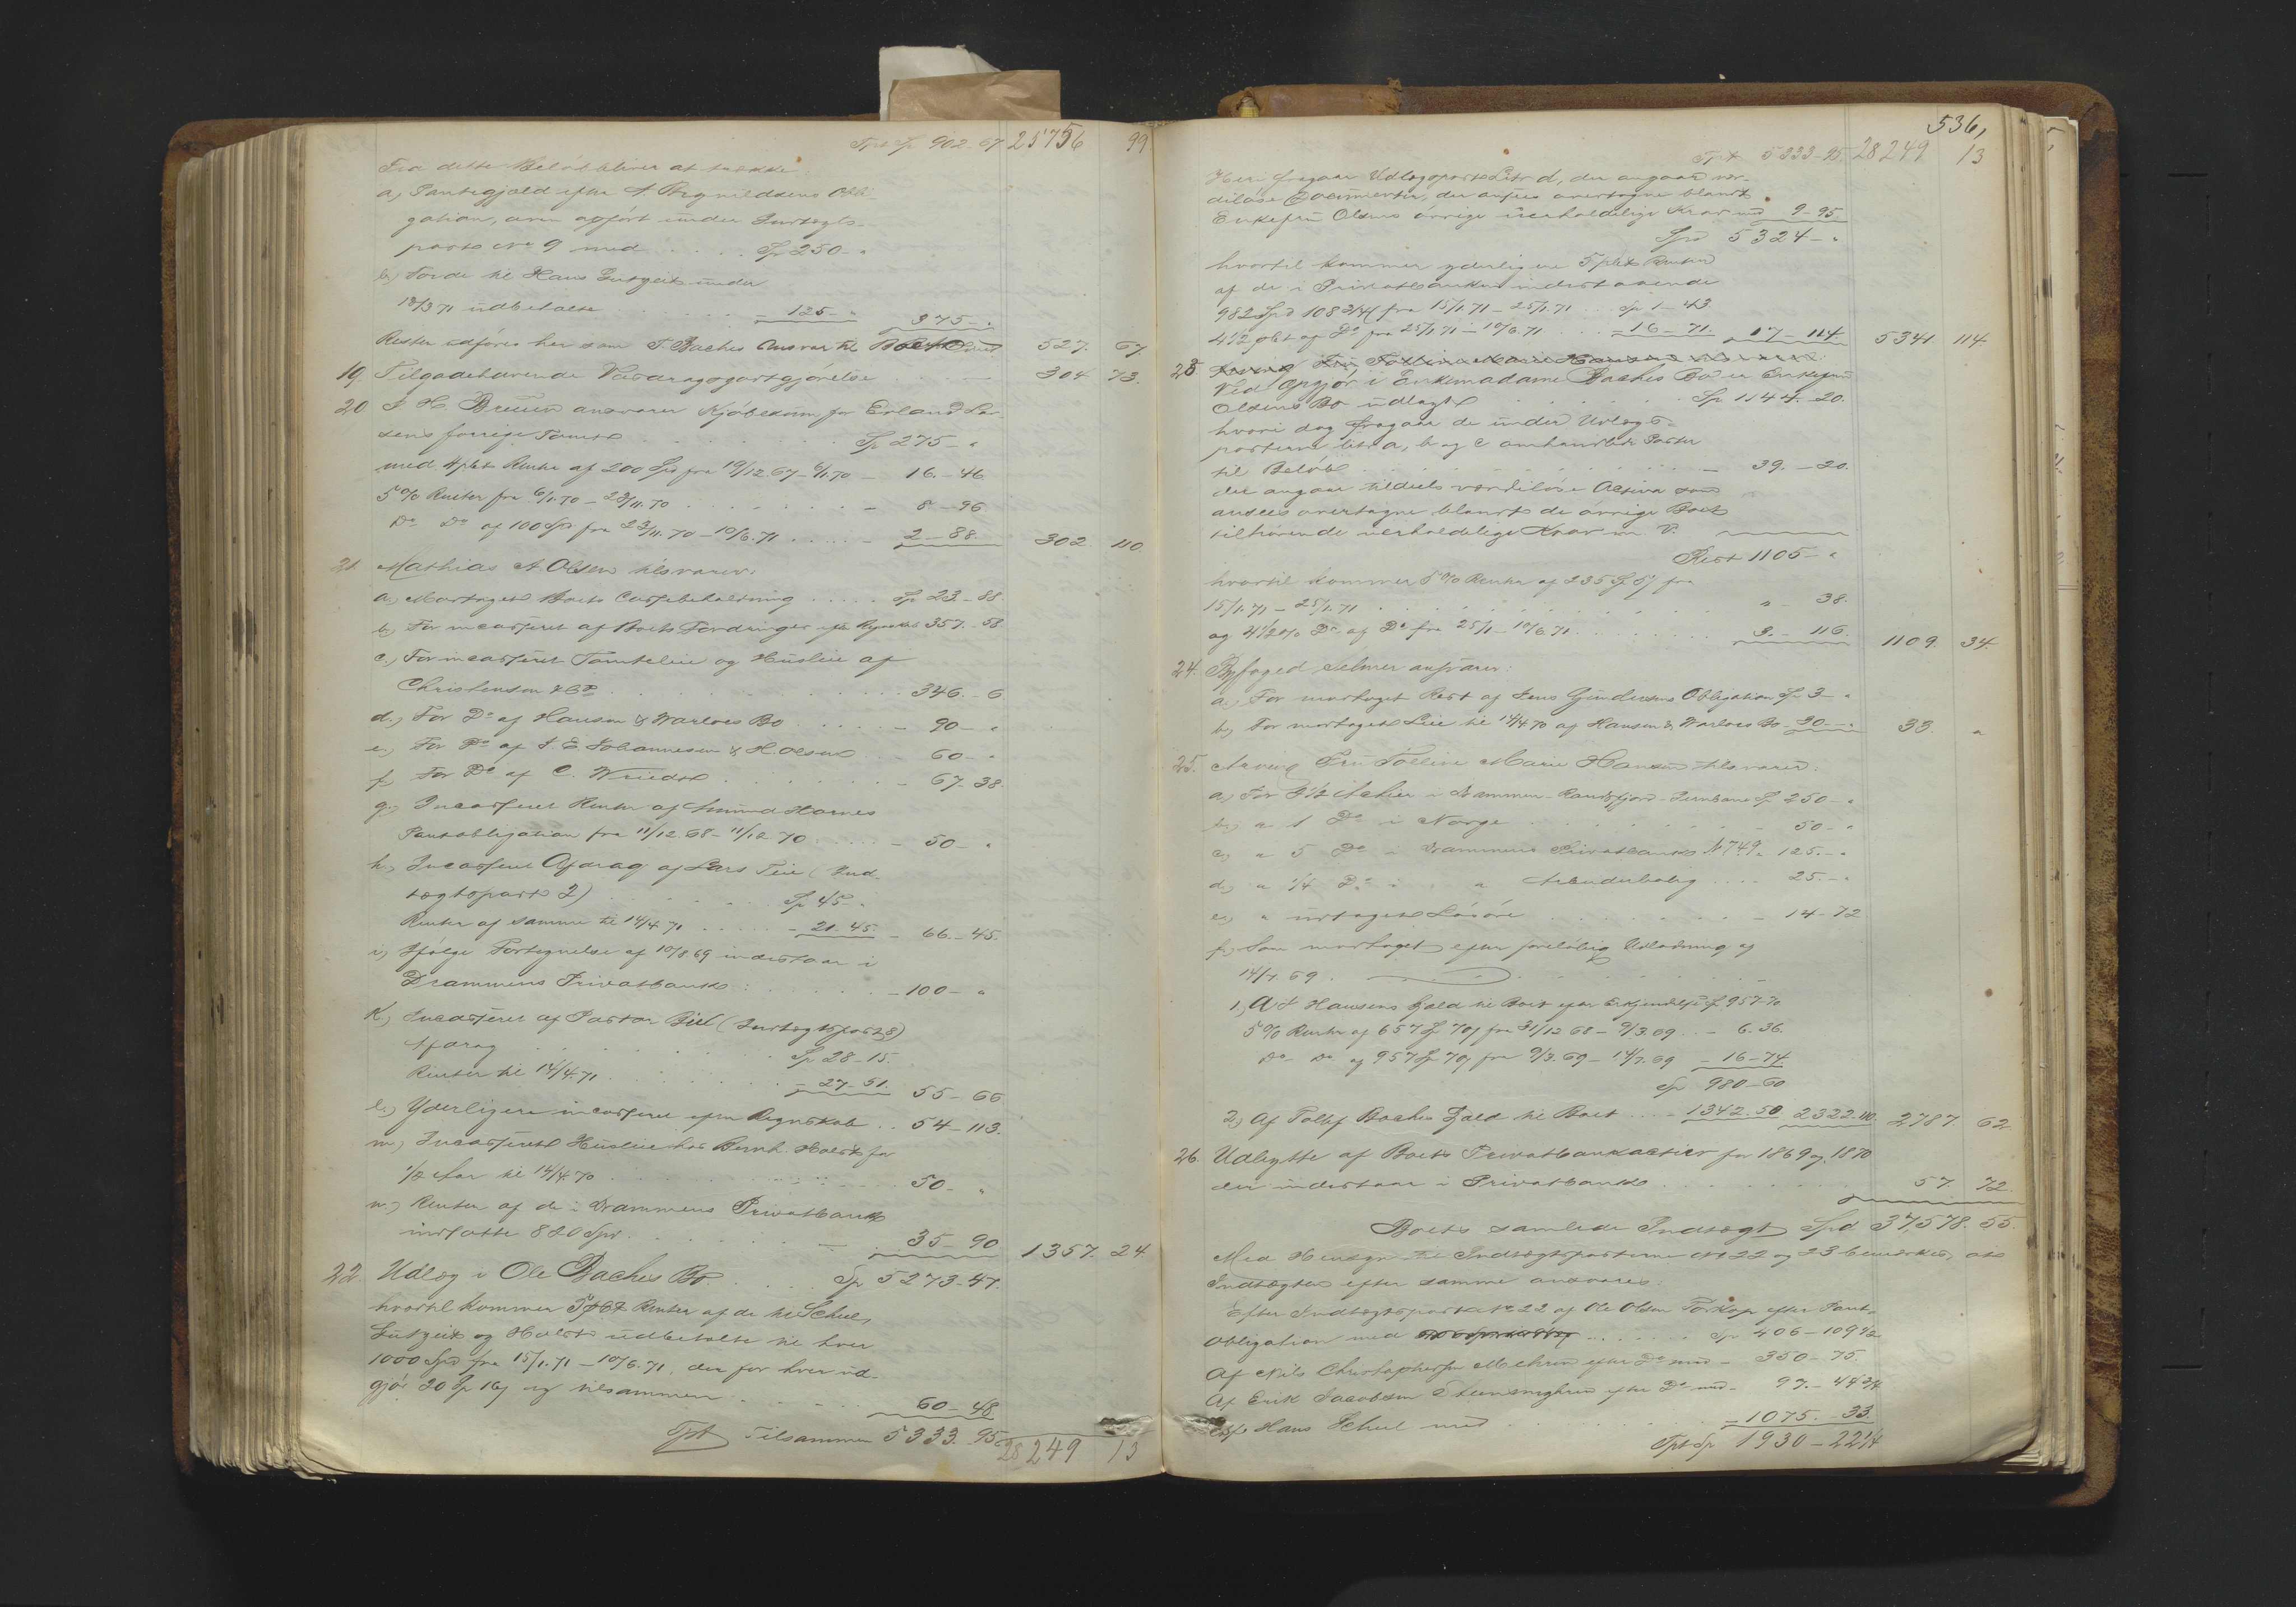 Tpt Sp 902. 67 25756 99
Fra dette Beløb bliver at trække:
a, Pantegjæld efter A Bregnildsens Obli-
gation, oven opført under Indtægts-
post No 9 med . . . . Sp 250- "
b, Ford til Hans Lutzeit under
18/3 71 udbetalte . . . . - 125- " 375- "
Resten udføres her som T. Baches Ansvar til Boet 527. 67.
19. Tilgodehavende Vasdragsgodtgjørelse . . - 304. 73.
20. J H Bruun ansvarer Kjøbesum for Erland Lar-
sens forrige Tomt . . . . . Sp 275- "
med 4 pCt Renter af 200 Spd fra 19/12.67-6/1.70 - 16.-46.
5 % Renter fra 6/1.70-23/11.70 . . . . . - 8-96.
Do Do af 100 Sp fra 23/11.70-10/6.71 . . . . - 2-88. 302. 110.
21. Mathias A. Olsen tilsvarer:
a.) Modtaget Boets Cassebeholdning . . . . . Sp 23-88
b.) For incasseret af Boets Fordringer efter Regnskab 357.-58
c.) For incasseret Tomteleie og Husleie af
Christensen & Co . . . . . 346.-6
d.) For Do af Hansen & Warloes Bo . . . - 90- "
e.) For Do af J. E. Johannesen & H. Olsen . . - 60- "
f.) For Do af C. Wriedt . . . . . - 67-38.
g.) Incasseret Renter af Amund Hornes
Pantobligation fra 11/12 68-11/12 70 . . . - 50- "
h.) Incasseret Afdrag af Lars Teie (Ind-
tægtspost 2) . . . . . Sp 45- "
Renter af samme til 14/4.71 . . . . - 21.45. - 66.-45.
i.) Ifølge Fortegnelse af 10/8 69 indestaar i
Drammens Privatbank: . . . . . - 100- "
k.) Incasseret af Pastor Biel (Indtægtspost 8)
Afdrag . . . . . Sp 28-15.
Renter til 14/4.71 . . . . . - 27-51. 55-66
l.) Yderligere incasseret efter Regnskab . . 54-113.
m.) Incasseret Husleie hos Bernh. Holst for
1/2 Aar til 14/4.70 . . . . . 50- "
n.) Renter af de i Drammens Privatbank
indsatte 820 Spd. . . . . - 35-90 1357. 24.
22. Udlæg i Ole Baches Bo. . . . . Sp 5273-47.
hvortil kommer 5 pCt Renter af de til Scheel,
Lutzeit og Holst udbetalte til hver
1000 Spd fra 15/1.71-10/6.71. der for hver ud-
gjør 20 Sp 16 og tilsammen . . . . . 60-48
Tpt Tilsammen 5333.95. 28249 13
536,
Tpt 5333-95. 28249 13
Heri fragaar Udlægspost Litr d, der angaar vær-
diløse Documenter, der ansees overtagne blandt
Enkefru Olsens øvrige uerholdelige Krav med 9-95
Spd 5324- "
hvortil kommer yderligere 5 pCt Renter
af de i Privatbanken indestaaende
982 Spd 108 3/4 fra 15/1 71-25/1.71 . . . Sp 1-43
4 1/2 pCt af Do fra 25/1.71-10/6.71 . . . - 16-71. 17-114. 5341 114.
23. Arving Fru Folline Marie Hansen tilsvarer:
Ved Opgjør i Enkemadame Baches Bo er Enkefru
Olsens Bo udlagt . . . . . Sp 1144.-20.
hvori dog fragaar de under Udlægs-
posterne litr a, b og c omhandlede Poster
til Beløb . . . . . - 39.-20.
der angaar tildeels værdiløse Activa som
ansees overtagne blandt de øvrige Boet
tilhørende uerholdelige Krav
Rest 1105- "
hvortil kommer 5 % Renter af 235 Sp 5 fra
15/1.71-25/1.71 . . . . . " - 38.
og 4 1/2 % Do af Do fra 25/1-10/6 71 . . . . 3.-116. 1109. 34.
24. Byfoged Selmer ansvarer:
a.) For modtaget Rest af Jens Gundersens Obligation Sp 3- "
b.) For modtaget Leie til 14/4 70 af Hansen & Warloes Bo - 30- " 33. "
25. Arving Fru Folline Marie Hansen tilsvarer:
a.) For 2 1/2 Actier i Drammen-Randsfjord-Jernbane Sp 250- "
b.) " 1 Do i Norge . . . . . - 50- "
c.) " 5 Do i Drammens Privatbank No 749. 125.- "
d.) " 1/4 Do " " Arbeiderbolig . . . . 25.- "
e.) " udtaget Løsøre . . . . . - 14-72
f.) Som modtaget efter foreløbig Udlodning af
14/7.69.
1) A & Hansens Gjæld til Boet efter Erkjendelse Sp 957-70
5 % Renter af 657 Sp 70 fra 31/12 68-9/3.69 . . - 6.36.
Do Do af 957 Sp 70 fra 9/3.69-14/7.69 - 16-74.
Sp 980-60
2) Af Toldf Baches Gjæld til Boet . . . - 1342.50 2322.110. 2787. 62
26. Udbytte af Boets Privatbankactier for 1869 og 1870
der indestaar i Privatbank . . . . . 57. 72.
Boets samlede Indtægt Spd 37,578. 55.
Med Hensyn til Indtægtsposterne No 22 og 23 bemærkes, at
Indtægten efter samme ansvares.
Efter Indtægtspost No 22 af Ole Olsen Torkop efter Pant-
obligation med . . . . . Sp 406-109 1/2
Af Nils Christophersen Mehren efter Do med - 350-75.
Af Erik Jacobsen Steensmghren efter Do med - 97.-44 3/4
Af Hans Scheel med . . . . . - 1075.-33.
Tpt Sp 1930-22 1/4